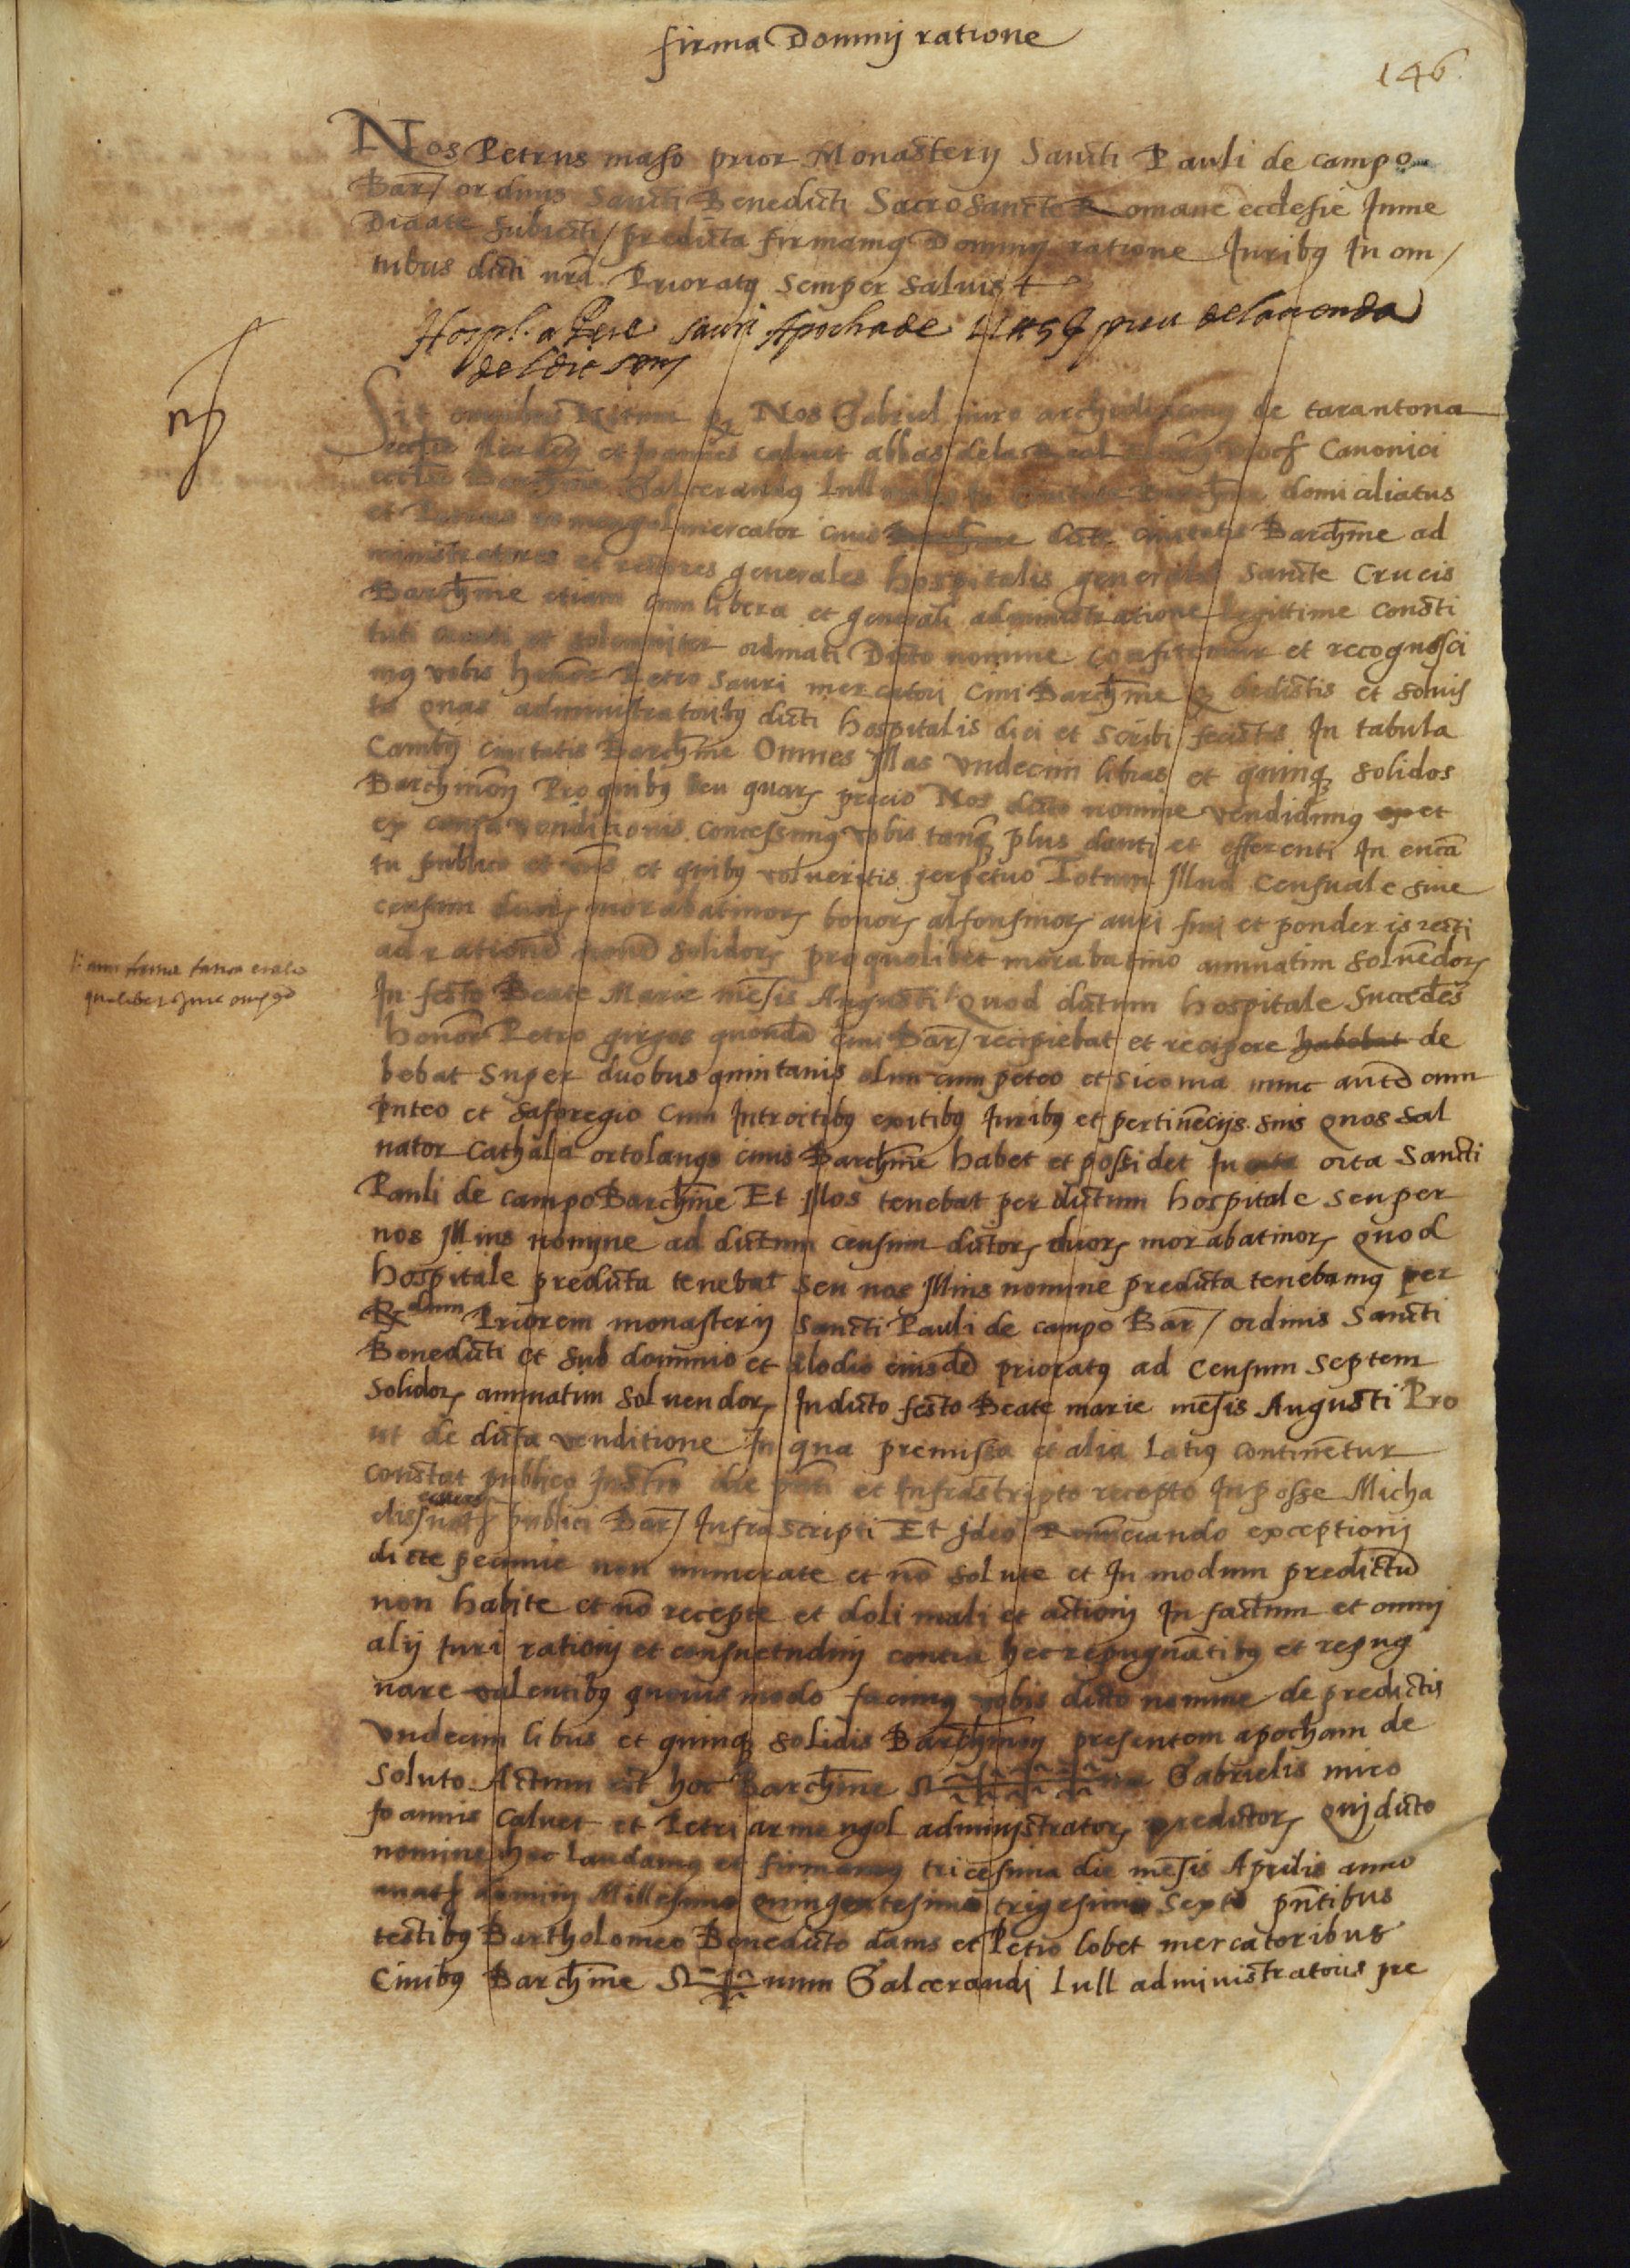 firma Dominij ratione
146
Nos Petrus maso prior Monasterij Sancti Pauli de campo
Bar/ ordinis Sancti Benedicti Sacro Sancte Romane ecclesie Inme
Diaate subiecti / predicta firmamus Dominij ratione Juribus In om/
nibus dicti nri Prioratus semper saluis
Hospl. a Pere Sauri Apocha de 11 ll 5 ß preu de la venda
del dit sens
Sit omnibus Notum q Nos Gabriel miro archidiaconus de tarantona
ecclesie et Joannes caluet abbas dela Real Canonici
ecclie Barchine Galcerandus lull domiciliatus
et Petrus armengol mercator ciuis Barchine dicte ciuitatis Barchine ad
ministratores et rectores generales hospitalis generalis Sancte Crucis
Barchine etiam cum libera et generali administratione legittime consti
tuti creati et solemniter ordinati Dicto nomine confitemur et recognosci
mus vobis honor Petro Sauri mercatori Ciui Barchine q dedistis et soluis
tis administratoribus dicti hospitalis dici et scribi fecistis In tabula
Cambij ciuitatis Barchine Omnes Illas vndecim libras et quinq solidos
Barchinon Pro quibus seu quarum precio Nos dicto nomine vendidimus ex et
ex causa venditionis concessimus vobis tanq plus danti et offerenti In enca
tu publico et vris et quibus volueritis perpetuo Totum Illud Censuale siue
censum duorum morabatinorum bonorum alfonsinorum auri fini et ponderis recti
ad rationem nouem solidorum pro quolibet morabatino annuatim soluendorum
In festo Beate Marie mesis Augusti Quod dictum hospitale Succedes
honor Petro quondam ciui Bar/ recipiebat et recipere habebat de
bebat super duobus quintanis olim cum puteo et sicoma nunc autem cum
puteo et safaregio Cum Introitibus exitibus Juribus et pertinecijs suis quos sal
uator Cathala ortolanus ciuis Barchine habet et possidet In orta orta Sancti
Pauli de campo Barchine Et Illos tenebat per dictum hospitale seu per
nos Illius nomine ad dictum censum dictorum duorum morabatinorum Quod
hospitale predicta tenebat seu nos Illius nomine predicta tenebamus per
Rdum Priorem monasterij Sancti Pauli de campo Bar/ ordinis Sancti
Benedicti et sub dominio et alodio eiusdem prioratus ad Censum septem
solidorum annuatim soluendorum In dicto festo Beate marie mesis Augusti Pro
ut de dicta venditione In qua premissa et alia latius continetur
constat publico Instro die pnti et Infrascripto recepto In posse Micha
elis not publici Bar/ Infrascripti Et Ideo Renunciando exceptioni
dicte pecunie non numerate et no solute et In modum predictum
non habite et no recepte et doli mali et actioni In factum et omni
alij Juri rationi et consuetudini contra hec repugnatibus et repug
nare valentibus quouis modo facimus vobis dicto nomine de predictis
vndecim libris et quinq solidis Barchinon presentem apocham de
soluto. Actum est hoc Barchine S na Gabrielis miro
Joannis Caluet et Petri armengol administratorum predictorum Qui dicto
nomine hec laudamus et firmamus tricesima die mesis Aprilis anno
a nat domini Millesimo quingentesimo trigesimo Sexto pntibus
testibus Bartholomeo Benedicto dams et Petro lobet mercatoribus
Ciuibus Barchine S num Galcerandi Lull administratoris pre